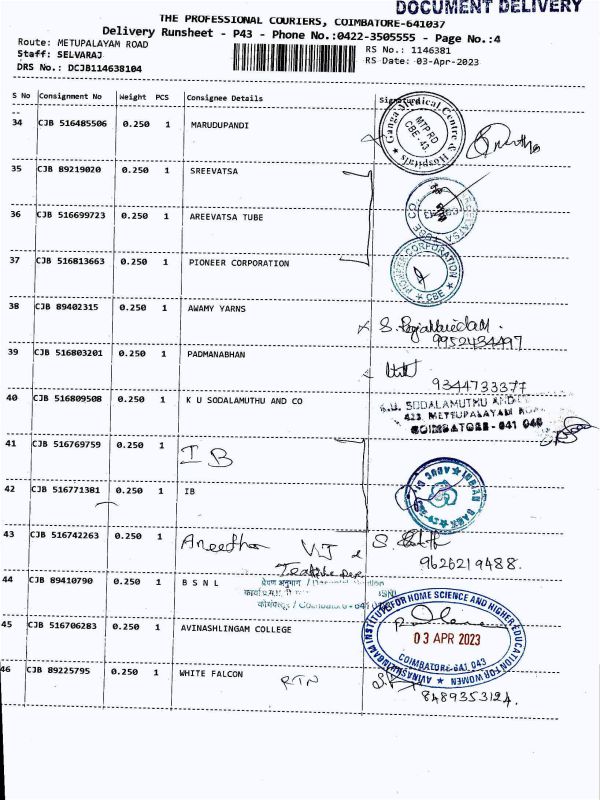 DOCUMENT DELIVERY
THE PROFESSIONAL COURIERS, COIMBATORE-641037
Delivery Runsheet - P43 - Phone No.:0422-3505555 - Page No.:4
Route: METUPALAYAM ROAD
RS No.: 1146381
Staff: SELVARAJ
RS Date: 03-Apr-2023
DRS No.: DCJB114638104
S No Consignment No Weight PCS Consignee Details
34 CJB 516485506 0.250 1 MARUDUPANDI
Ganga Medical Centre & Hospitals
MTP RD
CBE-43
35 CJB 89219020 0.250 1 SREEVATSA
36 CJB 516699723 0.250 1 AREEVATSA TUBE
37 CJB 516813663 0.250 1 PIONEER CORPORATION
PIONEER CORPORATION
CBE
38 CJB 89402315 0.250 1 AWAMY YARNS
9952434497
39 CJB 516803201 0.250 1 PADMANABHAN
9344733377
40 CJB 516809508 0.250 1 K U SODALAMUTHU AND CO
K.U. SODALAMUTHU AND
423, METTUPALAYAM
COIMBATORE - 641 043
41 CJB 516769759 0.250 1 IB
42 CJB 516771381 0.250 1 IB
INDIAN BANK
43 CJB 516742263 0.250 1
9626219488
44 CJB 89410790 0.250 1 B S N L
प्रेषण अनुभाग
/ Coimbatore - 641
45 CJB 516706283 0.250 1 AVINASHLINGAM COLLEGE
AVINASHILINGAM INSTITUTE FOR HOME SCIENCE AND HIGHER EDUCATION FOR WOMEN
03 APR 2023
COIMBATORE-641 043
46 CJB 89225795 0.250 1 WHITE FALCON RTN
8489353124